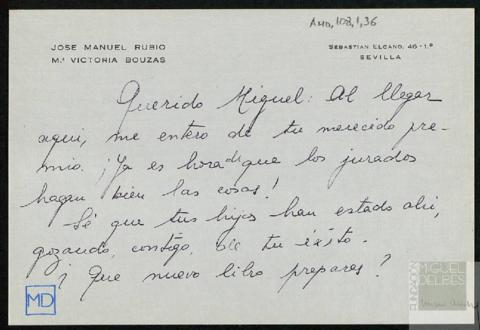 AMD,108,1,36
JOSE MANUEL RUBIO
Mª VICTORIA BOUZAS
SEBASTIAN ELCANO, 46 - 1.º
SEVILLA
Querido Miguel: Al llegar
aqui, me entero de tu merecido pre-
mio. ¡Ya es hora de que los jurados
hagan bien las cosas!
Sé que tus hijos han estado ahi,
gozando, contigo, de tu éxito.
¿ Que nuevo libro preparas ?
MD
FUNDACIÓN
MIGUEL
DELIBES